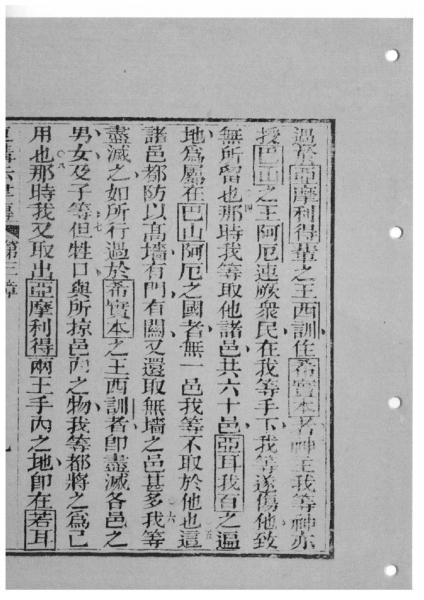 過於亞摩利得輩之王西訓住希實本者神主我等神亦
授巴山之王阿厄連厥衆民在我等手下我等遂傷他致
無所留也四那時我等取他諸邑共六十邑亞耳我百之逼
地爲屬在巴山阿厄之國者無一邑我等不取於他也五這
諸邑都防以高墻有門有閂又還取無墻之邑甚多六我等
盡滅之如所行過於希實本之王西訓者即盡滅各邑之
男女及子等七但牲口與所掠邑內之物我等都將之爲己
用也八那時我又取出亞摩利得兩王手內之地即在若耳
第三章